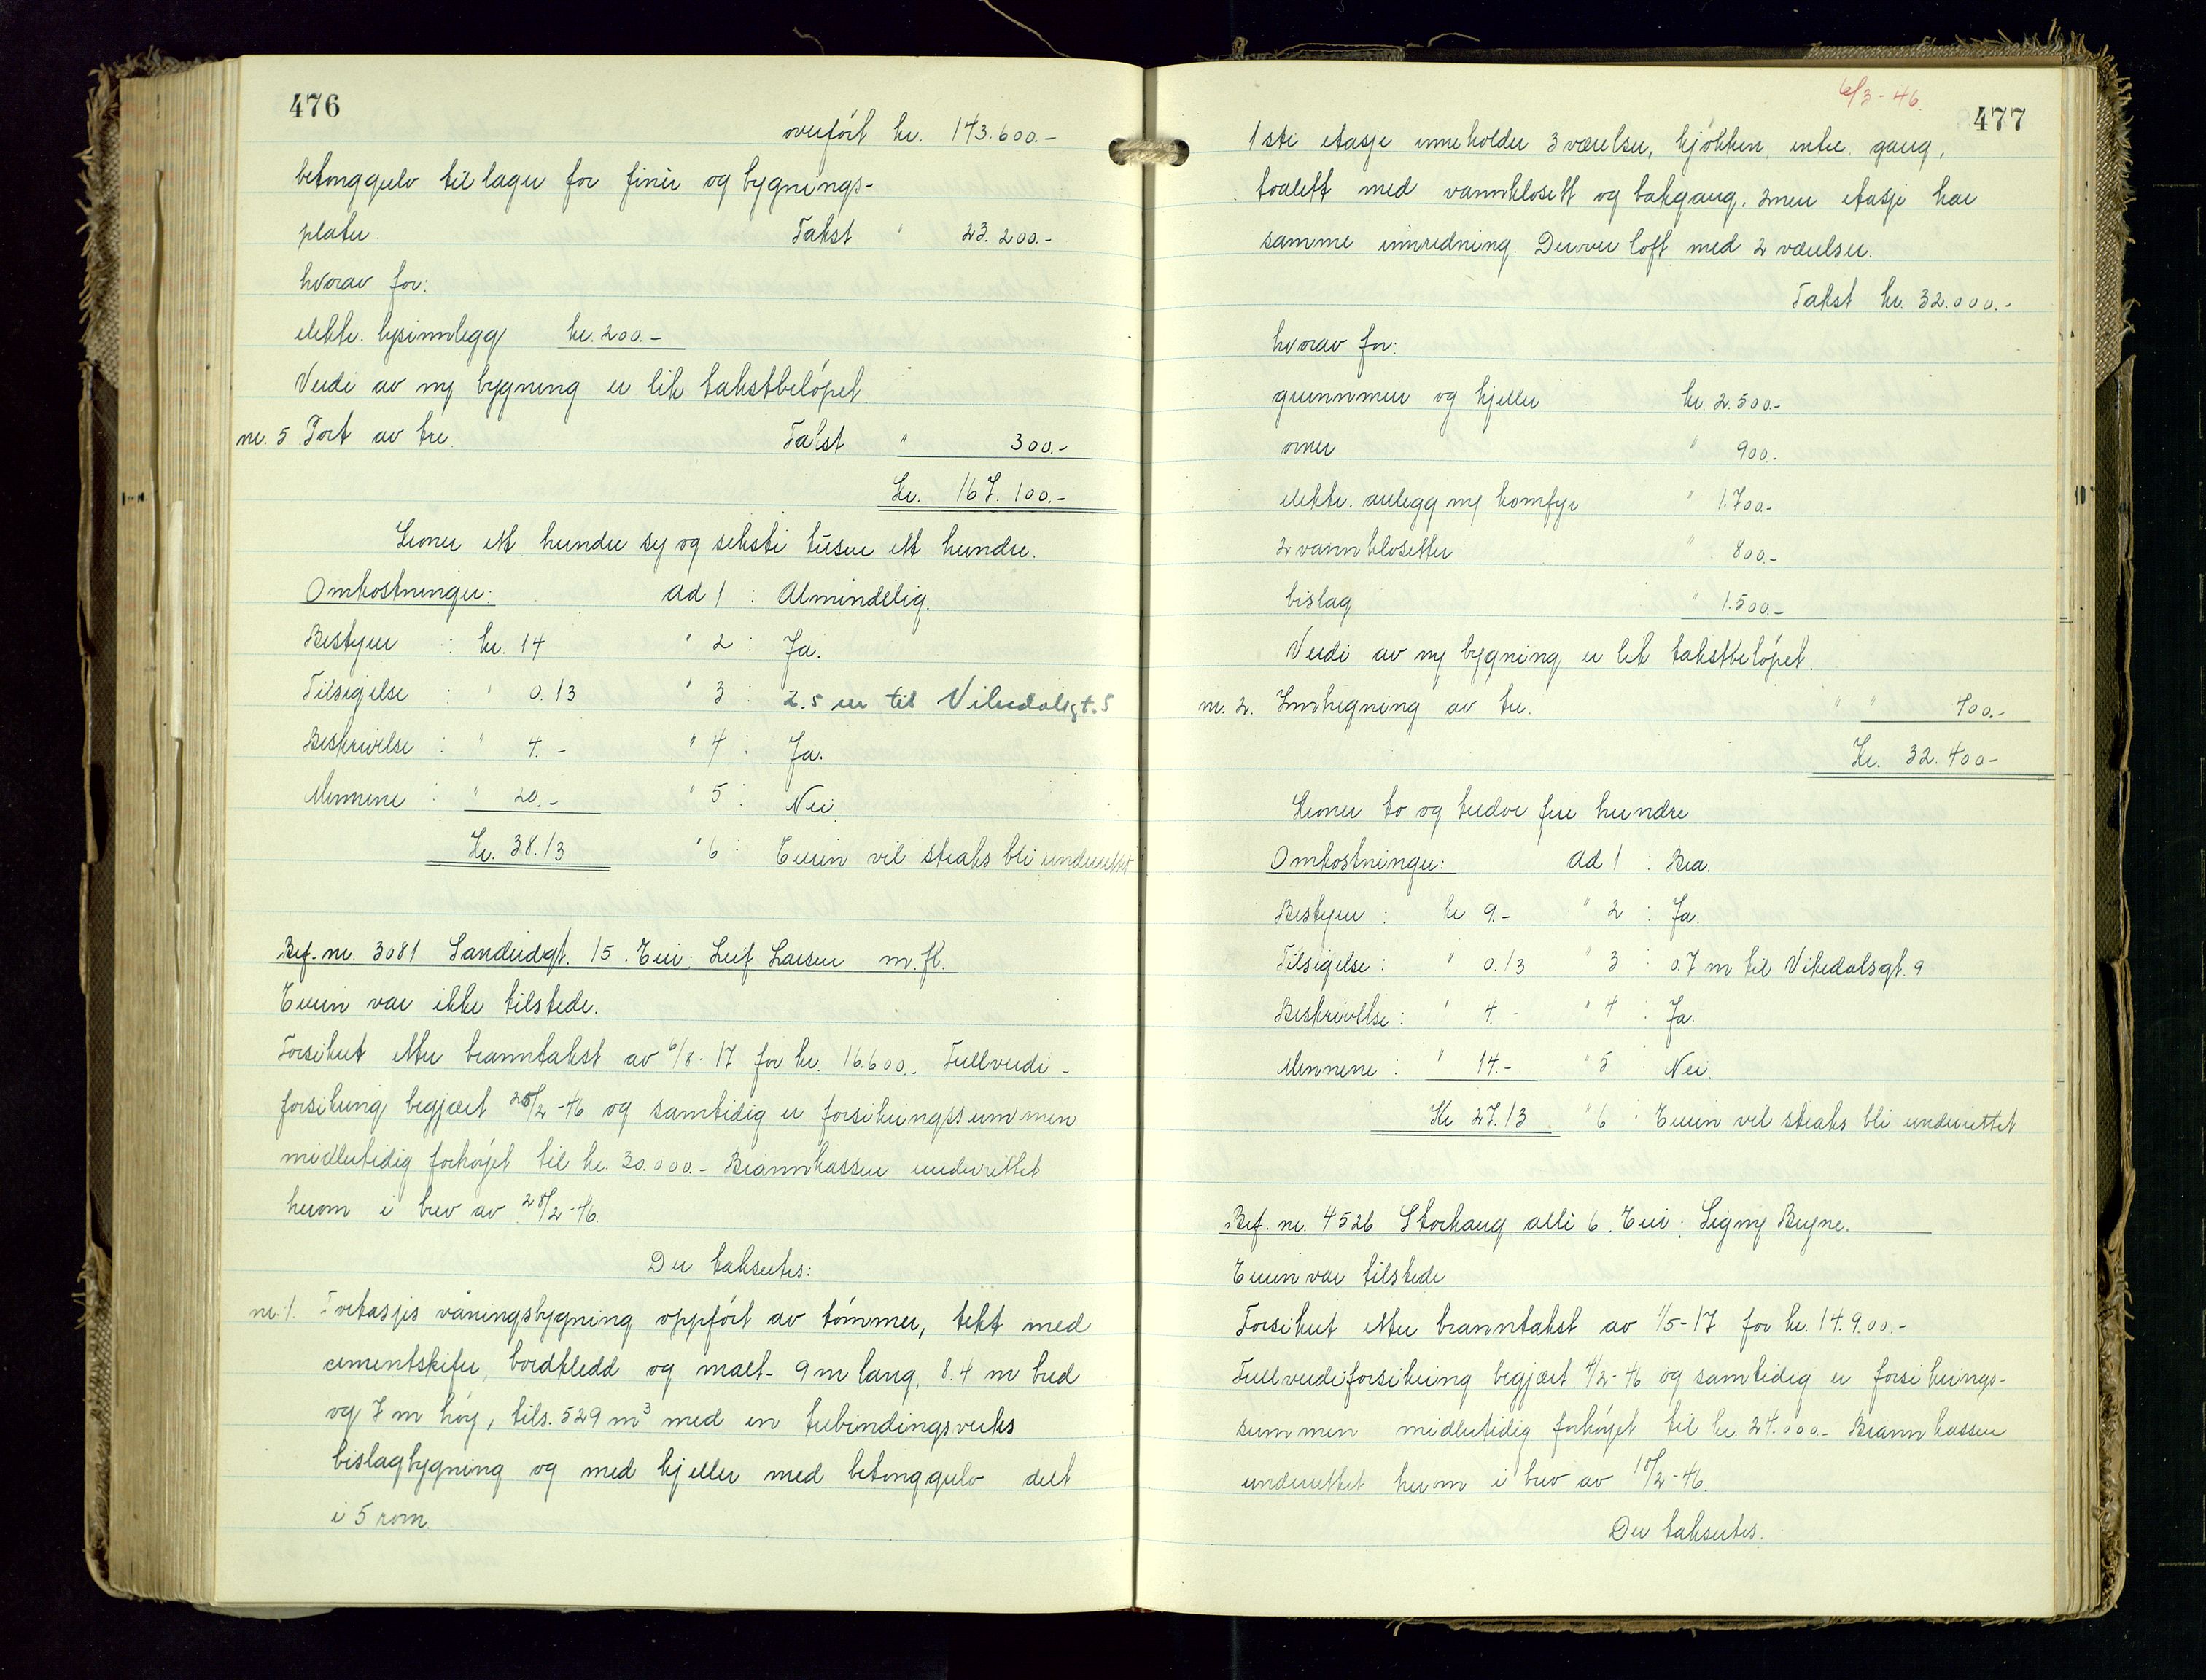 476
overført kr. 143.600.-
betonggulv til lager for finér og bygnings-
plater. Takst " 23.200.-
hvorav for:
elektr. lysinnlegg kr. 200.-
Verdi av ny bygning er lik takstbeløpet.
nr. 5 Port av tre. Takst " 300.-
Kr. 167.100.-
Kroner ett hundre syv og seksti tusen ett hundre.
Omkostninger: ad 1 : Almindelig.
Bestyrer : kr. 14 " 2 : Ja.
Tilsigelse : " 0.13 " 3 : 2.5 m til Vikedalsgt. 5
Beskrivelse : " 4.- " 4 : Ja.
Mennene : " 20.- " 5 : Nei.
Kr. 38.13 " 6 : Eieren vil straks bli underrettet
Br.f. nr. 3081 Sandeidgt. 15. Eier: Leif Larsen m. fl.
Eieren var ikke tilstede.
Forsikret etter branntakst av 6/8-17 for kr. 16.600.- Fullverdi-
forsikring begjært 25/2-46 og samtidig er forsikringssummen
midlertidig forhøyet til kr. 30.000.- Brannkassen underrettet
herom i brev av 28/2-46.
Der takseres:
nr. 1. Toetasjes våningsbygning oppført av tømmer, tekt med
cementskifer, bordkledd og malt - 9 m lang, 8.4 m bred
og 7 m høy, tils. 529 m³ med en trebindingsverks
bislagbygning og med kjeller med betonggulv delt
i 5 rom.
6/3-46.
477
1ste etasje inneholder 3 værelser, kjøkken, entre, gang,
toalett med vannklosett og bakgang. 2nen etasje har
samme innredning. Derover loft med 2 værelser.
Takst kr. 32.000.-
hvorav for:
grunnmur og kjeller kr. 2.500.-
ovner " 900.-
elektr. anlegg m/ komfyr " 1.700.-
2 vannklosetter " 800.-
bislag " 1.500.-
Verdi av ny bygning er lik takstbeløpet.
nr. 2. Innhegning av tre. " " 400.-
Kr. 32.400.-
Kroner to og tredve fire hundre
Omkostninger: ad 1 : Bra.
Bestyrer : kr 9.- " 2 : Ja.
Tilsigelse : " 0.13 " 3 : 0.7 m til Vikedalsgt. 9
Beskrivelse : " 4.- " 4 : Ja.
Mennene : " 14.- " 5 : Nei.
Kr 27.13 " 6 : Eieren vil straks bli underrettet
Br.f. nr. 4526 Storhaug allé 6. Eier: Signy Bryne.
Eieren var tilstede
Forsikret etter branntakst av 1/5-17 for kr. 14.900.-
Fullverdiforsikring begjært 4/2-46 og samtidig er forsikrings-
summen midlertidig forhøyet til kr. 24.000.- Brannkassen
underrettet herom i brev av 18/2-46.
Der takseres.